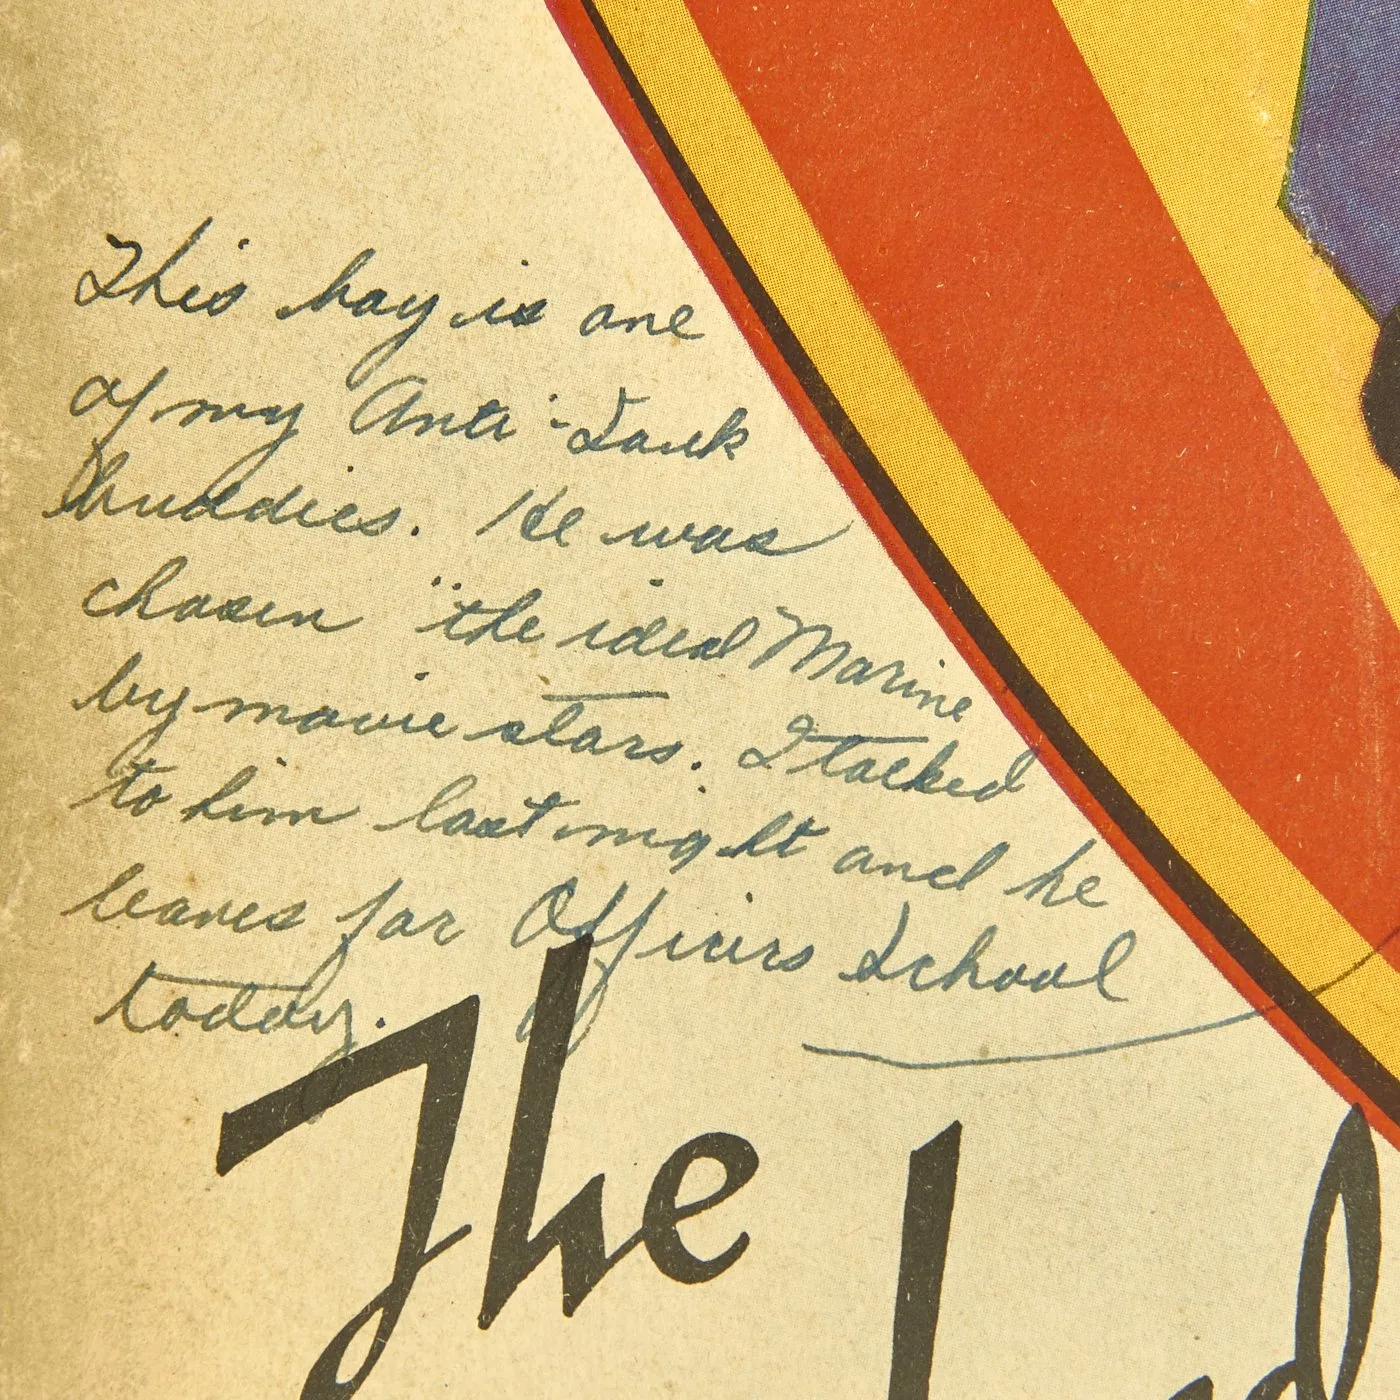 This boy is one
of my Anti-Tank
buddies. He was
chosen "the ideal Marine
by movie stars. I talked
to him last night and he
leaves for Officers School
today.
The